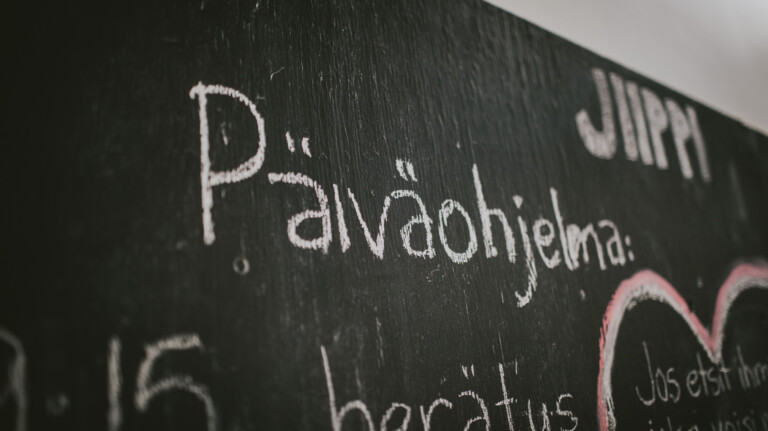 JIIPPI
Päiväohjelma:
9.15 herätus
Jos etsit ihm